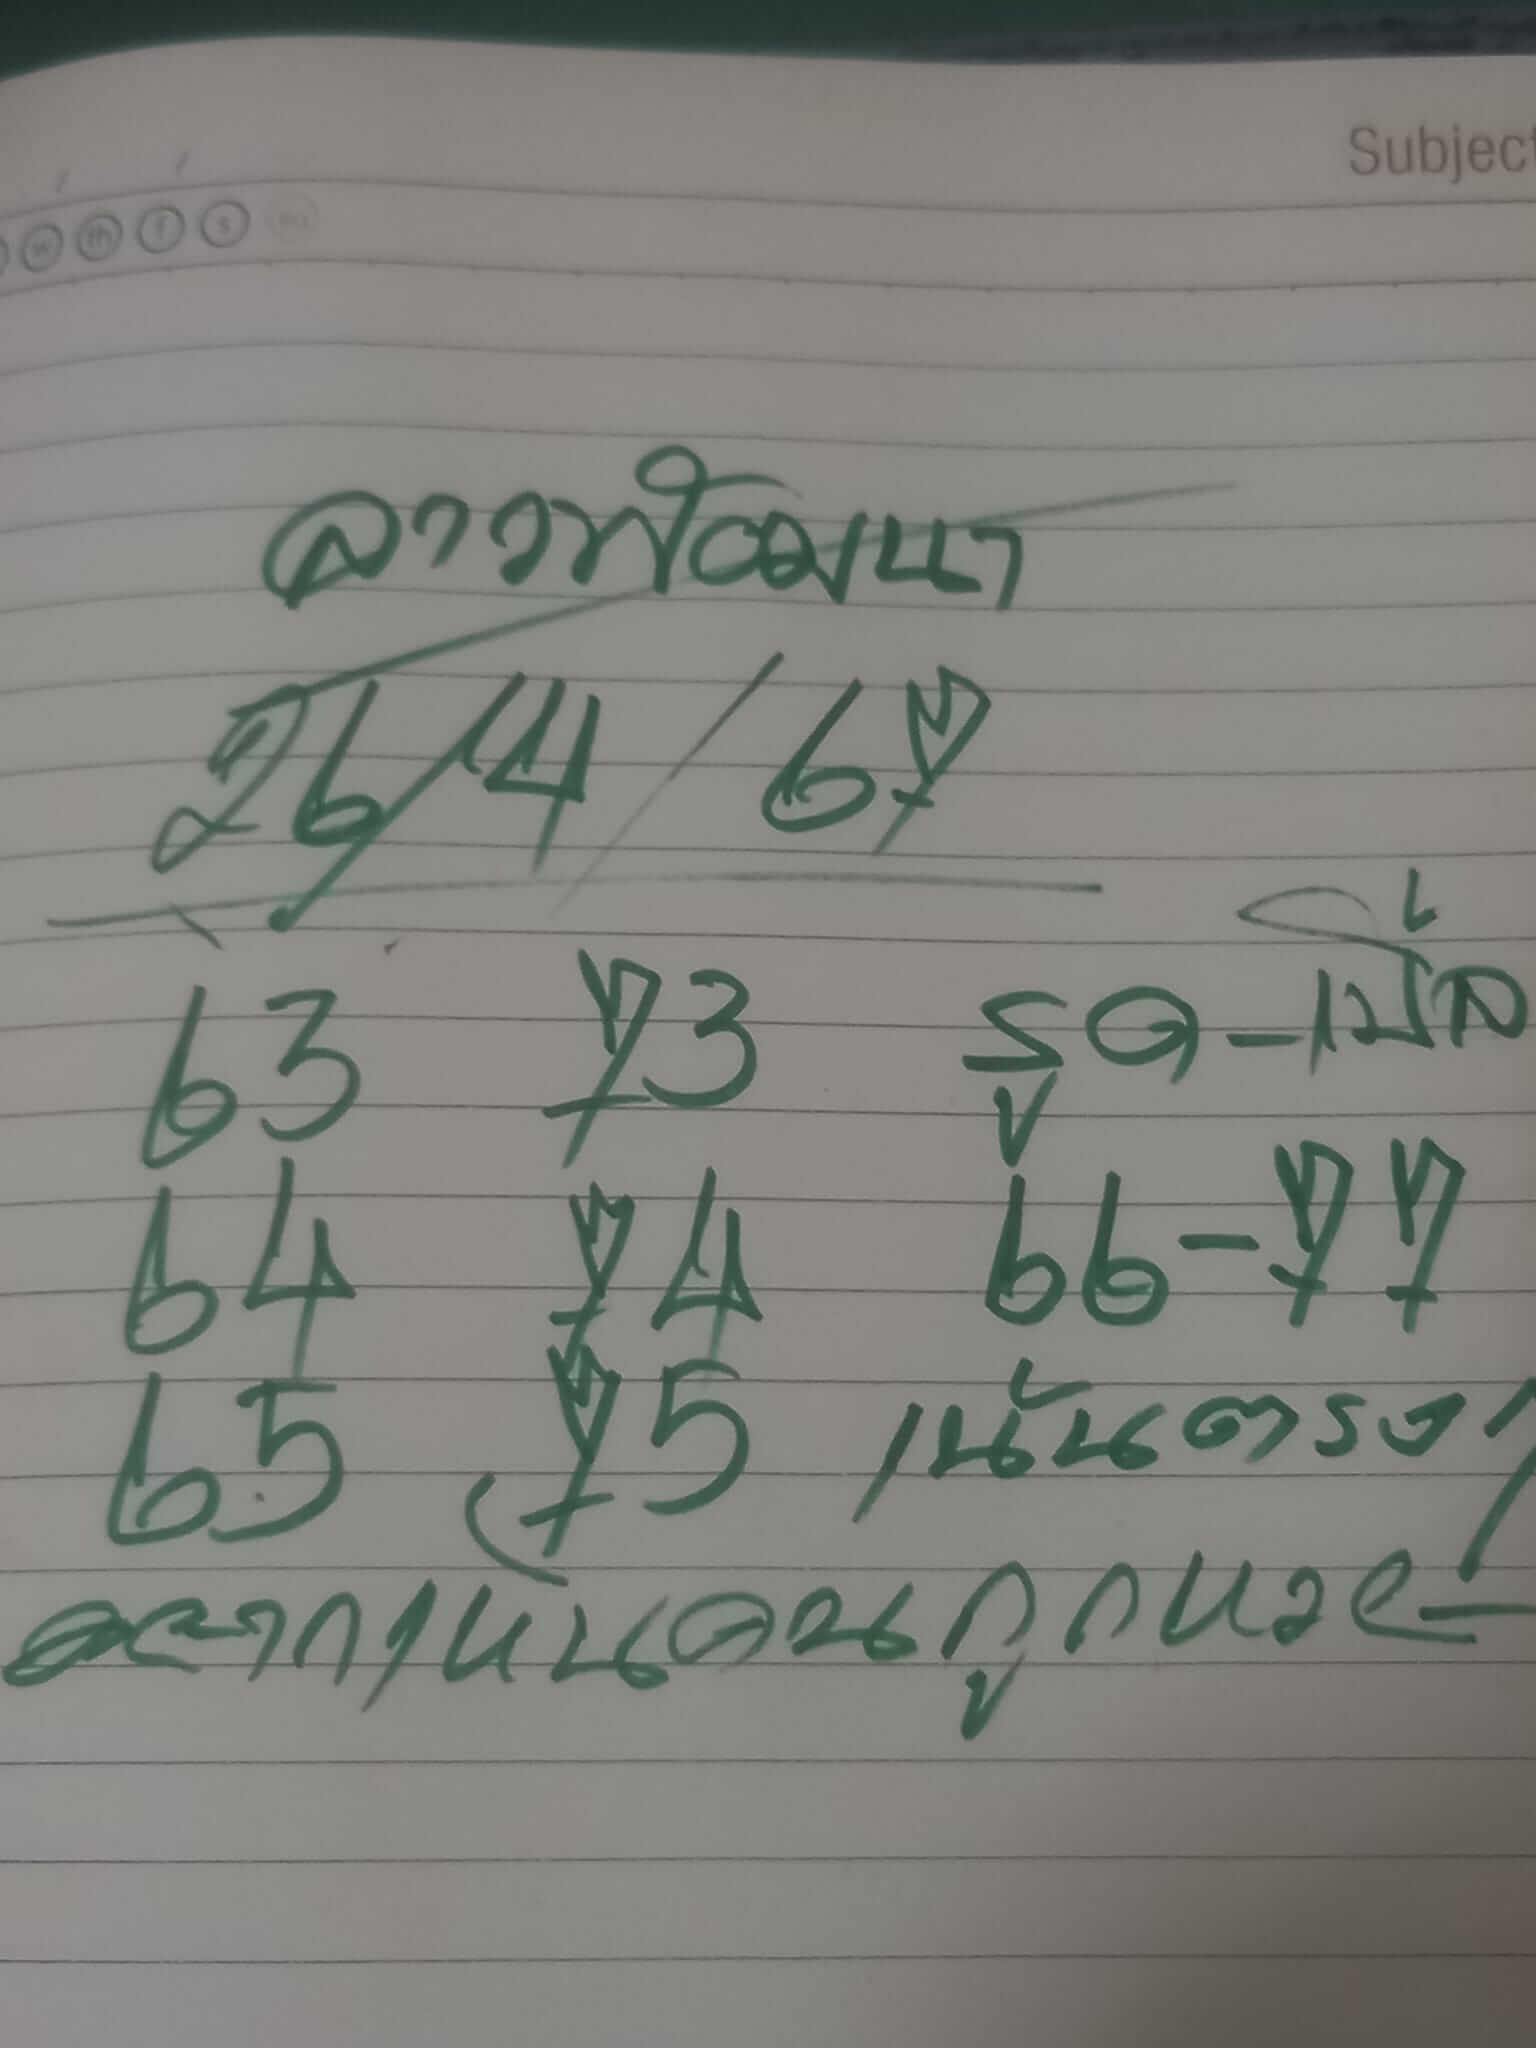 Subject
w th f s su
ลาวพัฒนา
26/4/67
63 73 รูด-เบิ้ล
64 74 66-77
65 75 เน้นตรงๆ
อยากเห็นคนถูกหวย